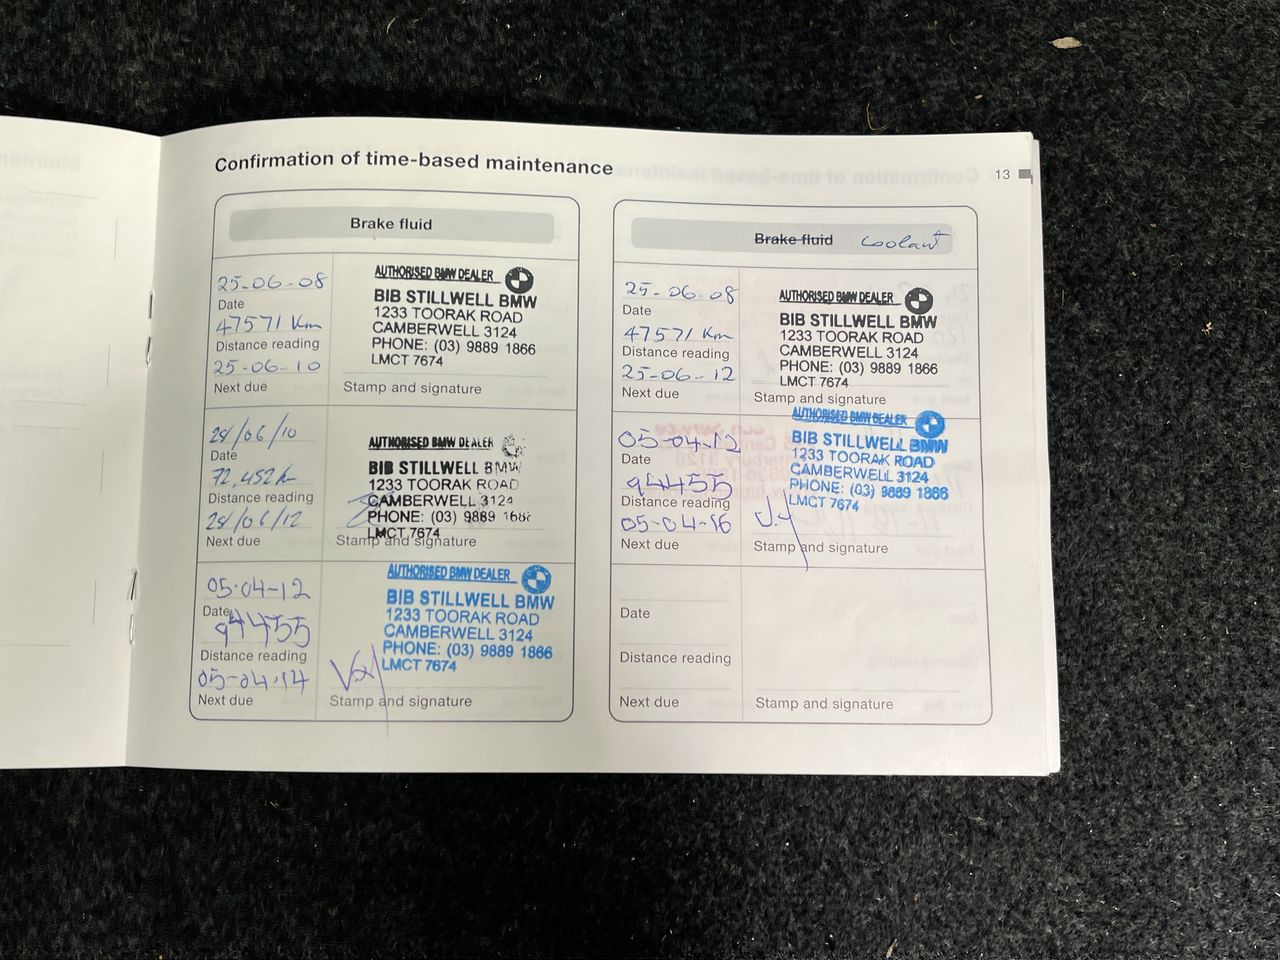 Confirmation of time-based maintenance
13
Brake fluid
25-06-08
Date
47571 Km
Distance reading
25-06-10
Next due
AUTHORISED BMW DEALER
BIB STILLWELL BMW
1233 TOORAK ROAD
CAMBERWELL 3124
PHONE: (03) 9889 1866
LMCT 7674
Stamp and signature
28/06/10
Date
72,452k
Distance reading
28/06/12
Next due
AUTHORISED BMW DEALER
BIB STILLWELL BMW
1233 TOORAK ROAD
CAMBERWELL 3124
PHONE: (03) 9889 1866
LMCT 7674
Stamp and signature
05-04-12
Date
94455
Distance reading
05-04-14
Next due
AUTHORISED BMW DEALER
BIB STILLWELL BMW
1233 TOORAK ROAD
CAMBERWELL 3124
PHONE: (03) 9889 1866
LMCT 7674
Stamp and signature
Brake fluid coolant
25-06-08
Date
47571 Km
Distance reading
25-06-12
Next due
AUTHORISED BMW DEALER
BIB STILLWELL BMW
1233 TOORAK ROAD
CAMBERWELL 3124
PHONE: (03) 9889 1866
LMCT 7674
Stamp and signature
05-04-12
Date
94455
Distance reading
05-04-16
Next due
AUTHORISED BMW DEALER
BIB STILLWELL BMW
1233 TOORAK ROAD
CAMBERWELL 3124
PHONE: (03) 9889 1866
LMCT 7674
Stamp and signature
Date
Distance reading
Next due
Stamp and signature